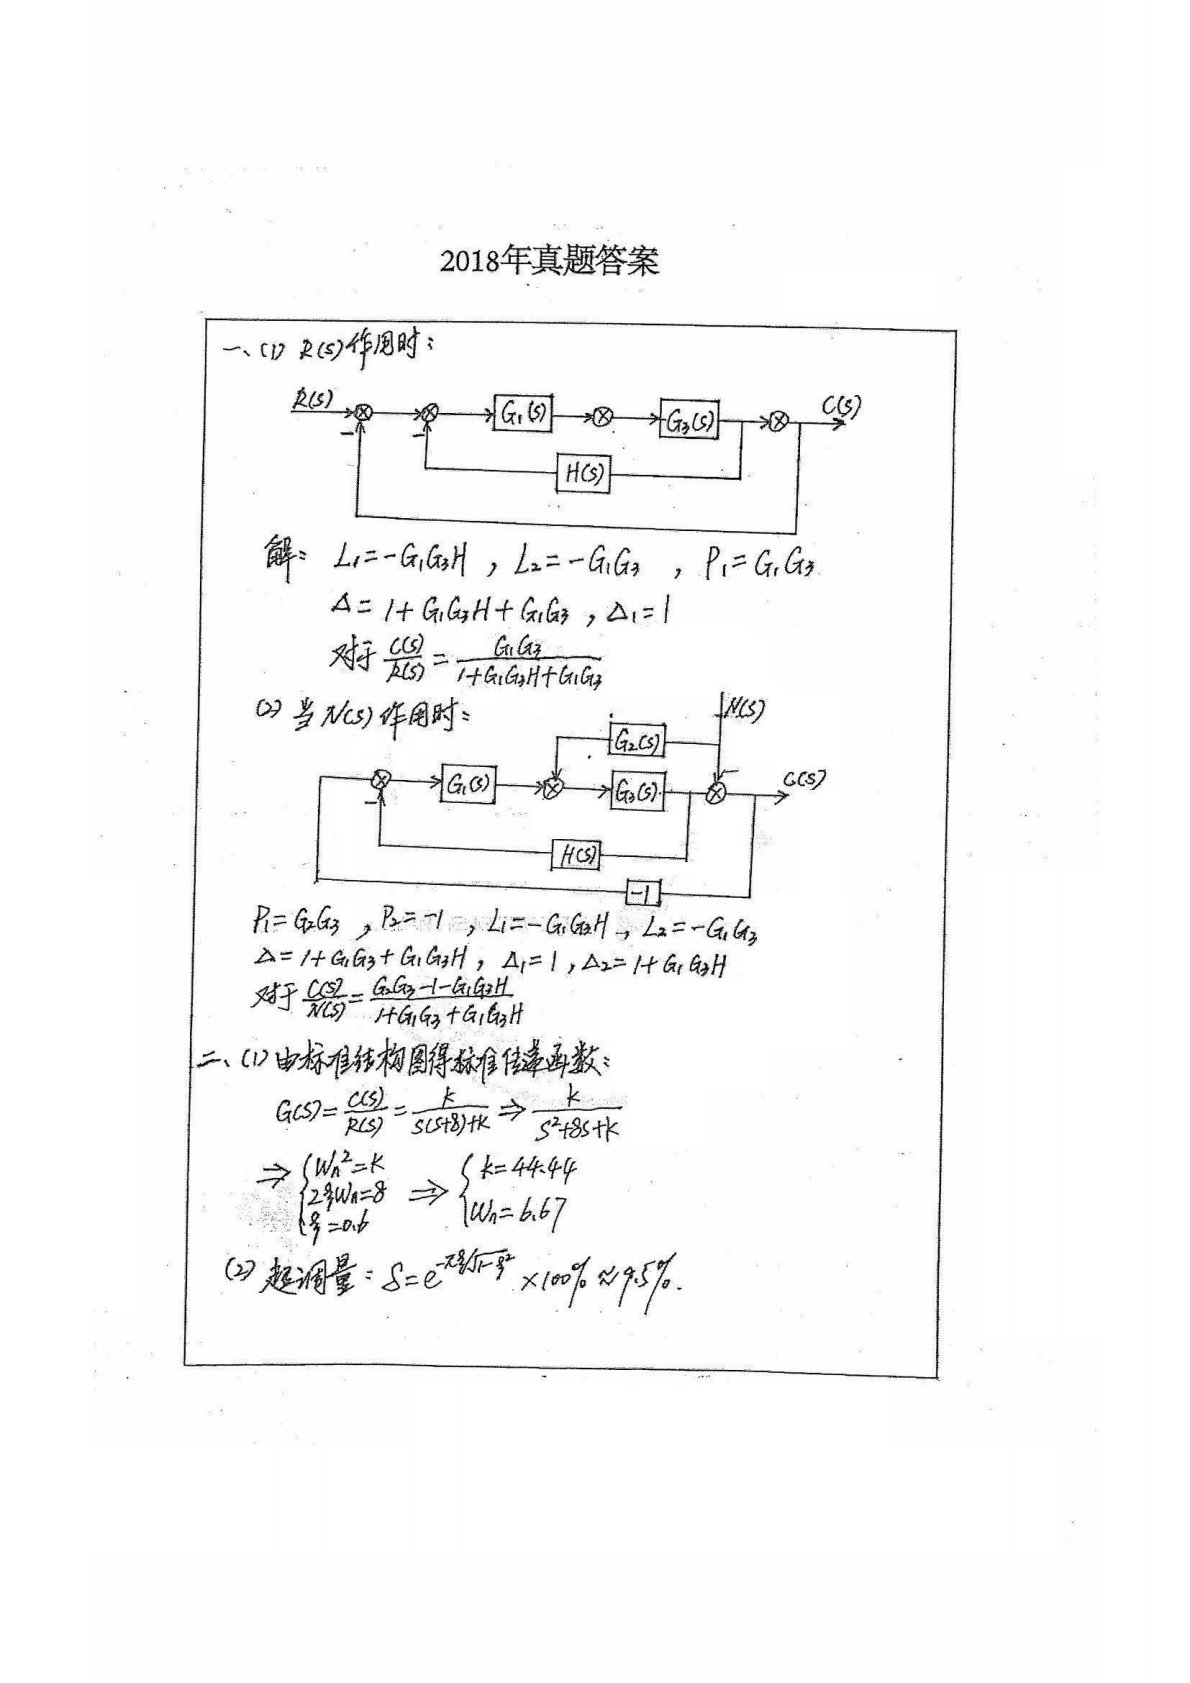 2018年真题答案
一、(1) R(s)作用时：
R(s) G₁(s) G₃(s) C(s)
- - H(s)
解：L₁=-G₁G₃H ， L₂=-G₁G₃ ， P₁=G₁G₃
Δ=1+G₁G₃H+G₁G₃ ，Δ₁=1
对于 C(s)/R(s) = G₁G₃/(1+G₁G₃H+G₁G₃)
(2) 当N(s)作用时：
N(s)
G₂(s)
G₁(s) G₃(s) - C(s)
- H(s)
-1
P₁=G₂G₃ ，P₂=-1 ，L₁=-G₁G₃H ，L₂=-G₁G₃
Δ=1+G₁G₃+G₁G₃H ，Δ₁=1 ，Δ₂=1+G₁G₃H
对于 C(s)/N(s) = (G₂G₃-1-G₁G₃H)/(1+G₁G₃+G₁G₃H)
二、(1)由标准结构图得标准传递函数：
G(s)= C(s)/R(s) = k/(s(s+8)+k) ⇒ k/(s²+8s+k)
⇒ { Wn²=k ⇒ { k=44.44
2ξWn=8 Wn=6.67
ξ=0.6
(2) 超调量：δ=e^(-πξ/√(1-ξ²)) ×100% ≈9.5%.